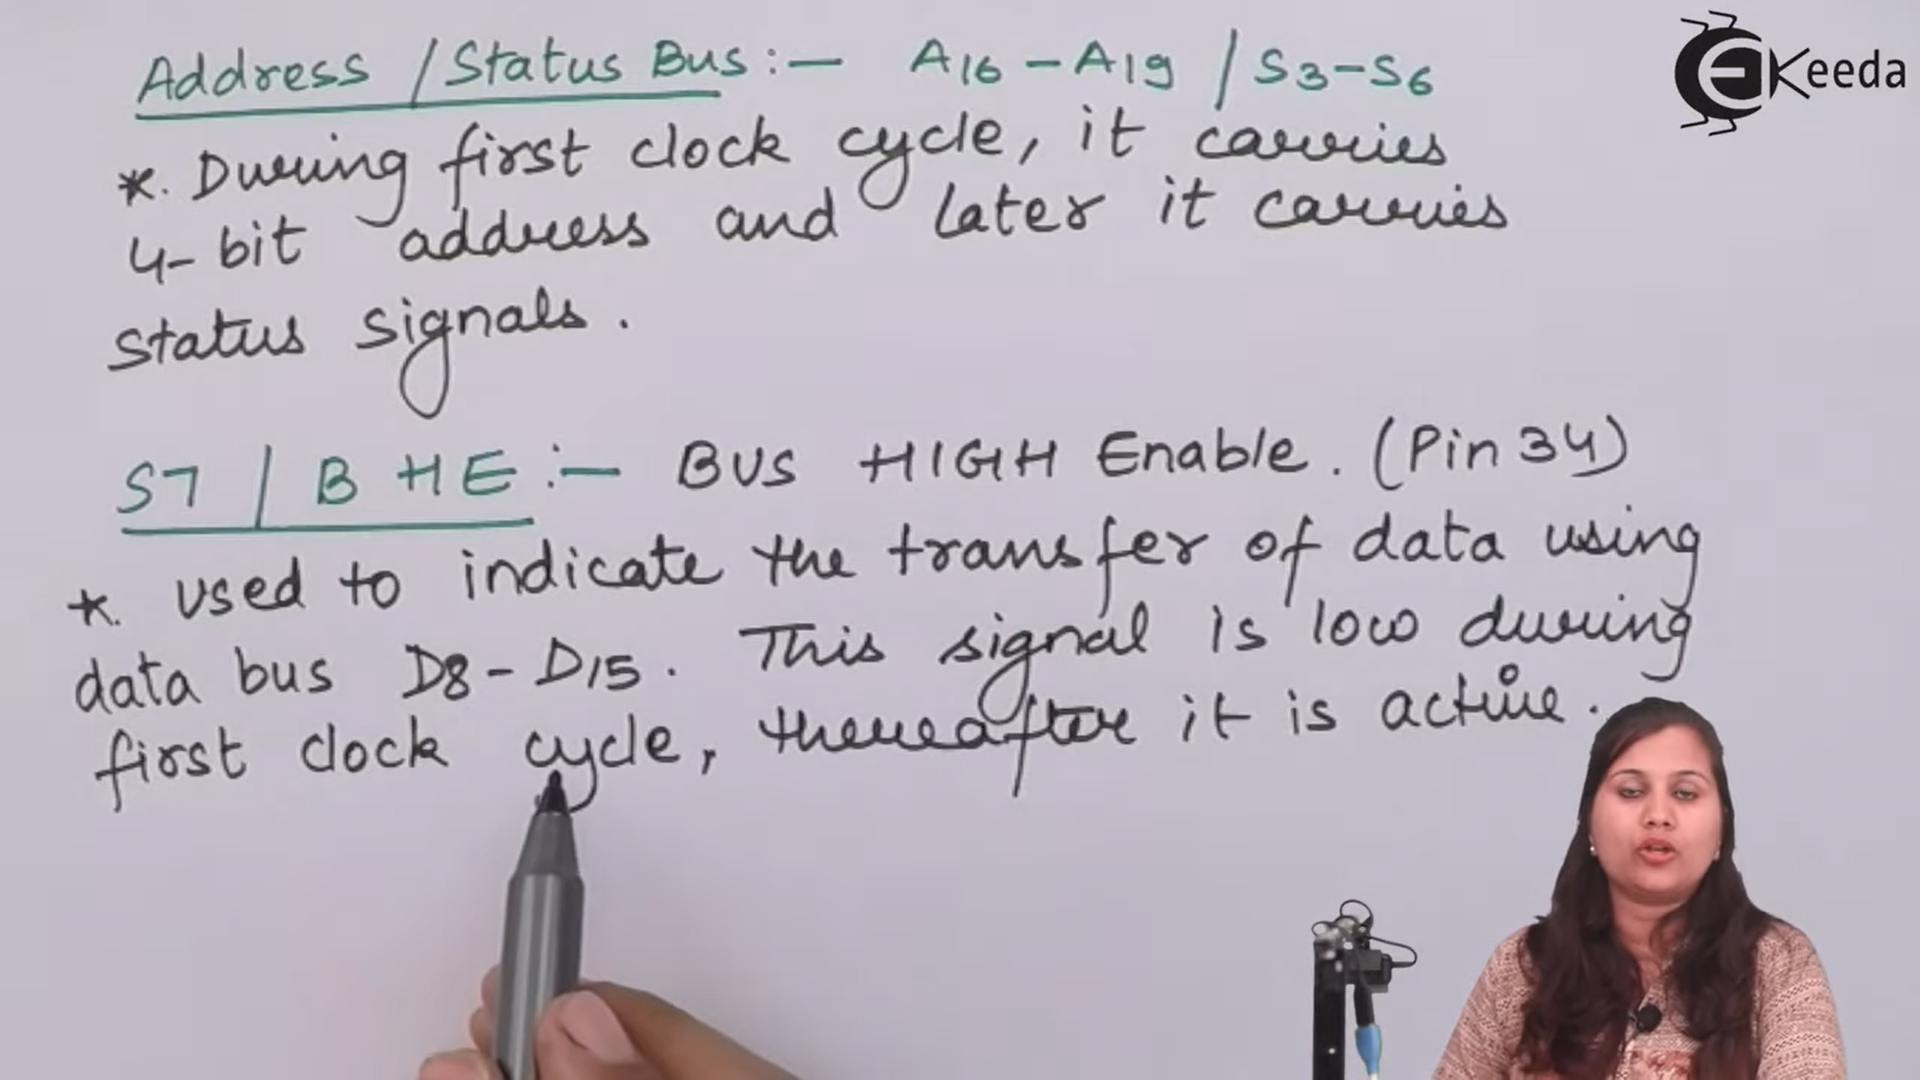 Address / Status Bus :- A16 - A19 / S3-S6
*. During first clock cycle, it carries
4-bit address and later it carries
status signals.
S7 / BHE :- BUS HIGH Enable. (Pin 34)
*. used to indicate the transfer of data using
data bus D8 - D15. This signal is low during
first clock cycle, thereafter it is active.
EKeeda